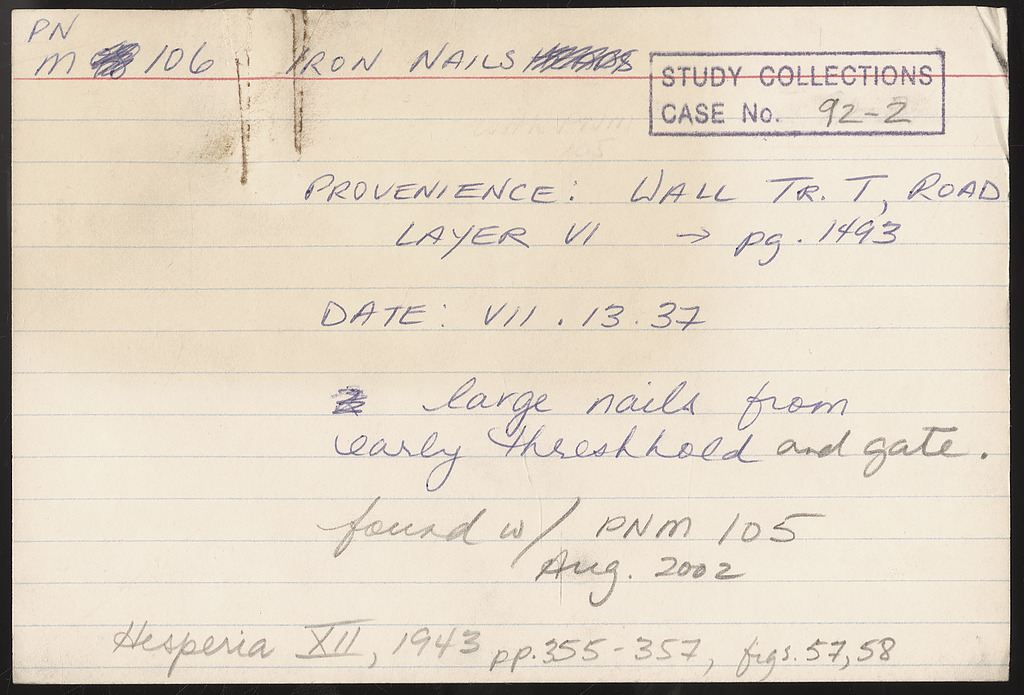 PN
M 106 IRON NAILS
STUDY COLLECTIONS
CASE No. 92-2
PROVENIENCE: WALL TR. T, ROAD
LAYER VI → pg. 1493
DATE: VII . 13 . 37
large nails from
early threshhold and gate.
found w/ PNM 105
Aug. 2002
Hesperia XII, 1943 pp. 355-357, figs. 57, 58